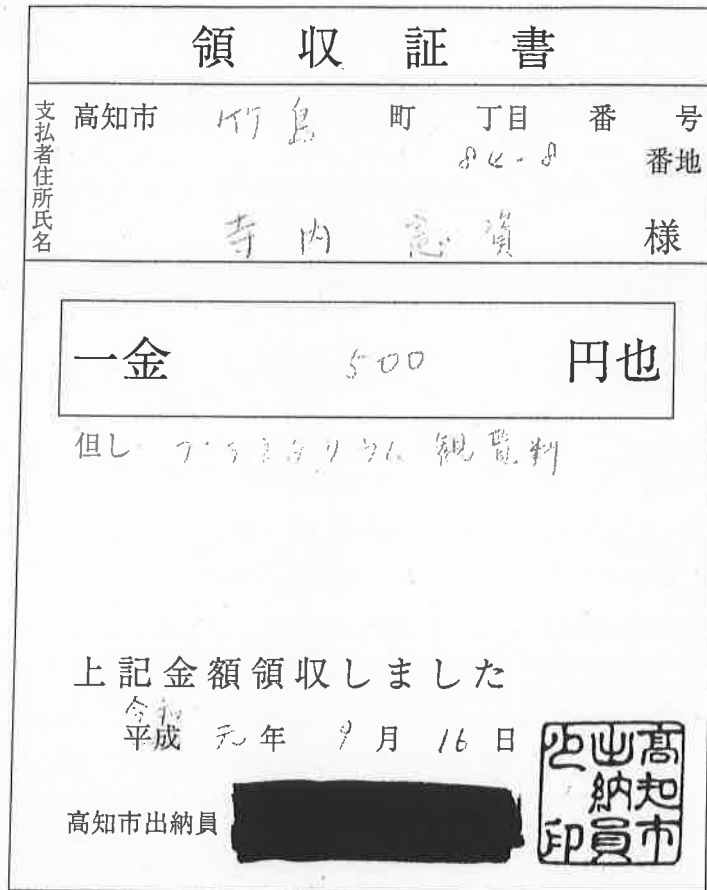 領収証書
支払者住所氏名
高知市 竹島 町 丁目 番 号
84-8 番地
寺内 憲資 様
一金 500 円也
但し プラネタリウム 観覧料
上記金額領収しました
令和
平成 元年 9月 16日
高知市出納員
高知市出納員之印